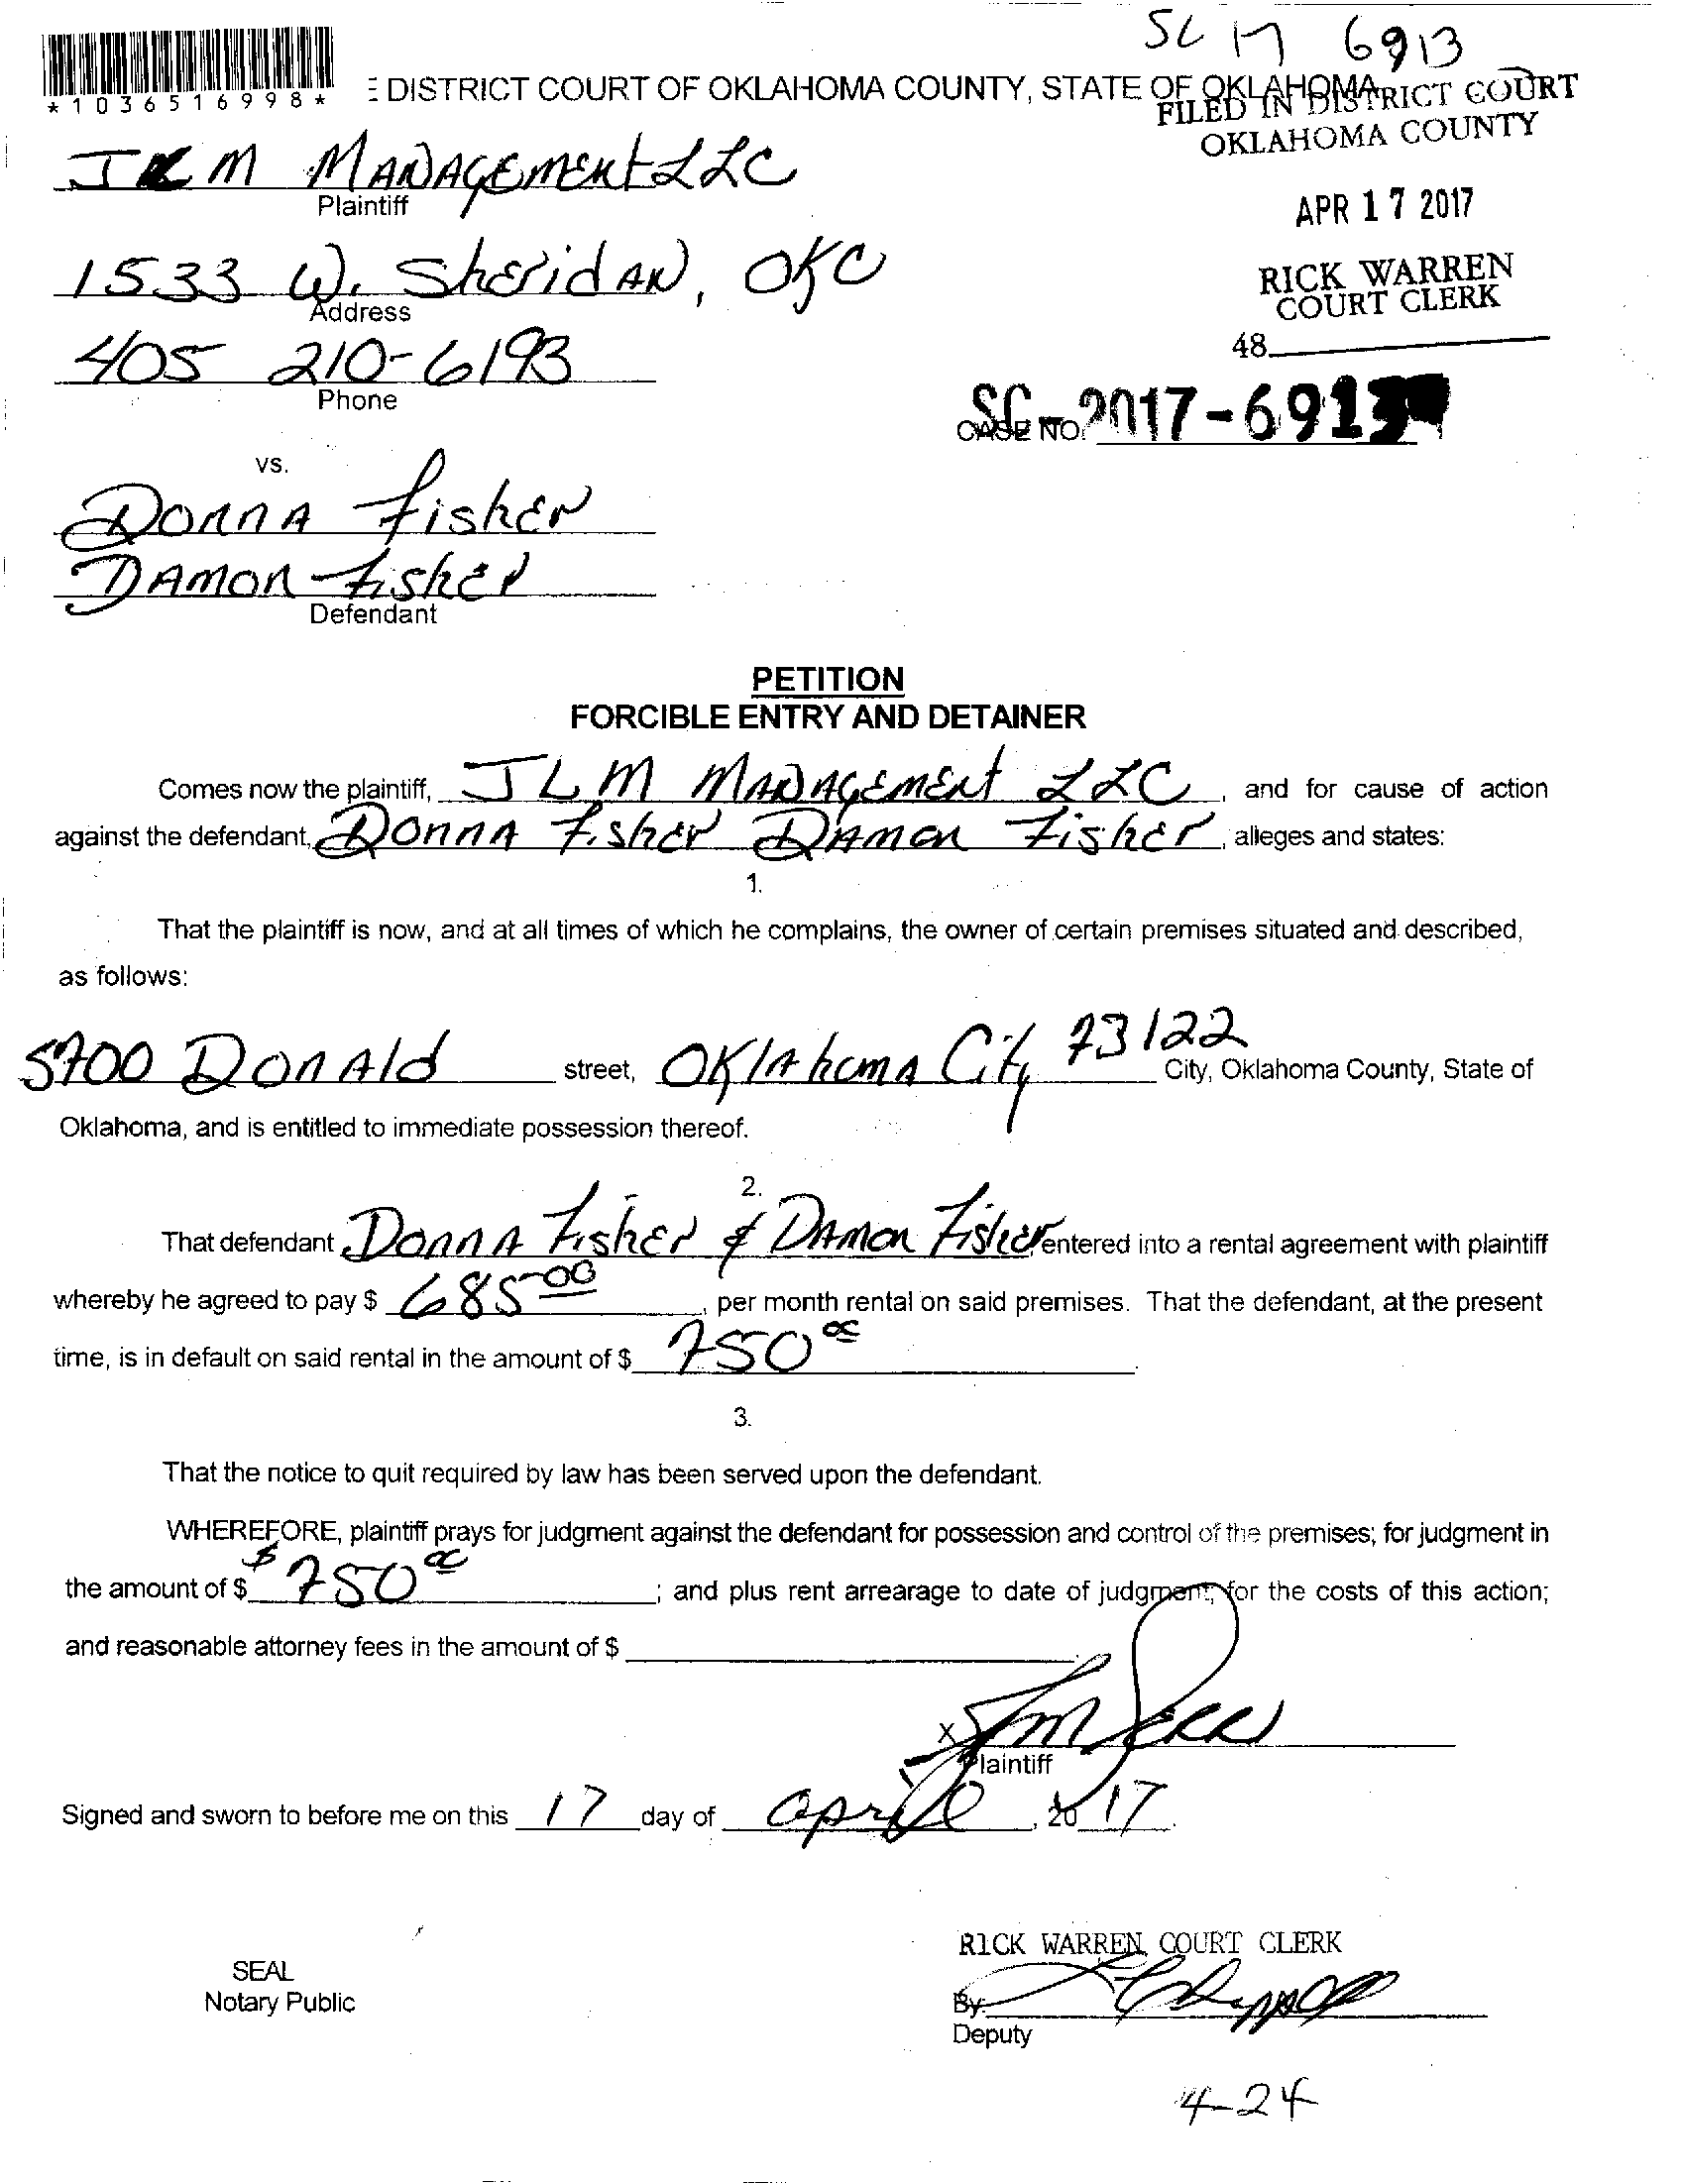 SC 17 6913
*1036516998*
DISTRICT COURT OF OKLAHOMA COUNTY, STATE OF OKLAHOMA
FILED IN DISTRICT COURT
OKLAHOMA COUNTY
JLM MANAGEMENT LLC
Plaintiff
APR 17 2017
1533 W. Sheridan, OKC
Address
RICK WARREN
COURT CLERK
405 210-6193
Phone
48
CASE NO. SC-2017-6913
vs.
Donna Fisher
Damon Fisher
Defendant
PETITION
FORCIBLE ENTRY AND DETAINER
Comes now the plaintiff, JLM Management LLC, and for cause of action
against the defendant, Donna Fisher Damon Fisher, alleges and states:
1.
That the plaintiff is now, and at all times of which he complains, the owner of certain premises situated and described,
as follows:
5700 Donald street, Oklahoma City 73122 City, Oklahoma County, State of
Oklahoma, and is entitled to immediate possession thereof.
2.
That defendant Donna Fisher & Damon Fisher entered into a rental agreement with plaintiff
whereby he agreed to pay $ 685 00, per month rental on said premises. That the defendant, at the present
time, is in default on said rental in the amount of $ 750 00.
3.
That the notice to quit required by law has been served upon the defendant.
WHEREFORE, plaintiff prays for judgment against the defendant for possession and control of the premises; for judgment in
the amount of $ $750 00; and plus rent arrearage to date of judgment; for the costs of this action;
and reasonable attorney fees in the amount of $
X
Plaintiff
Signed and sworn to before me on this 17 day of April, 2017.
RICK WARREN COURT CLERK
SEAL
Notary Public
By
Deputy
4-24